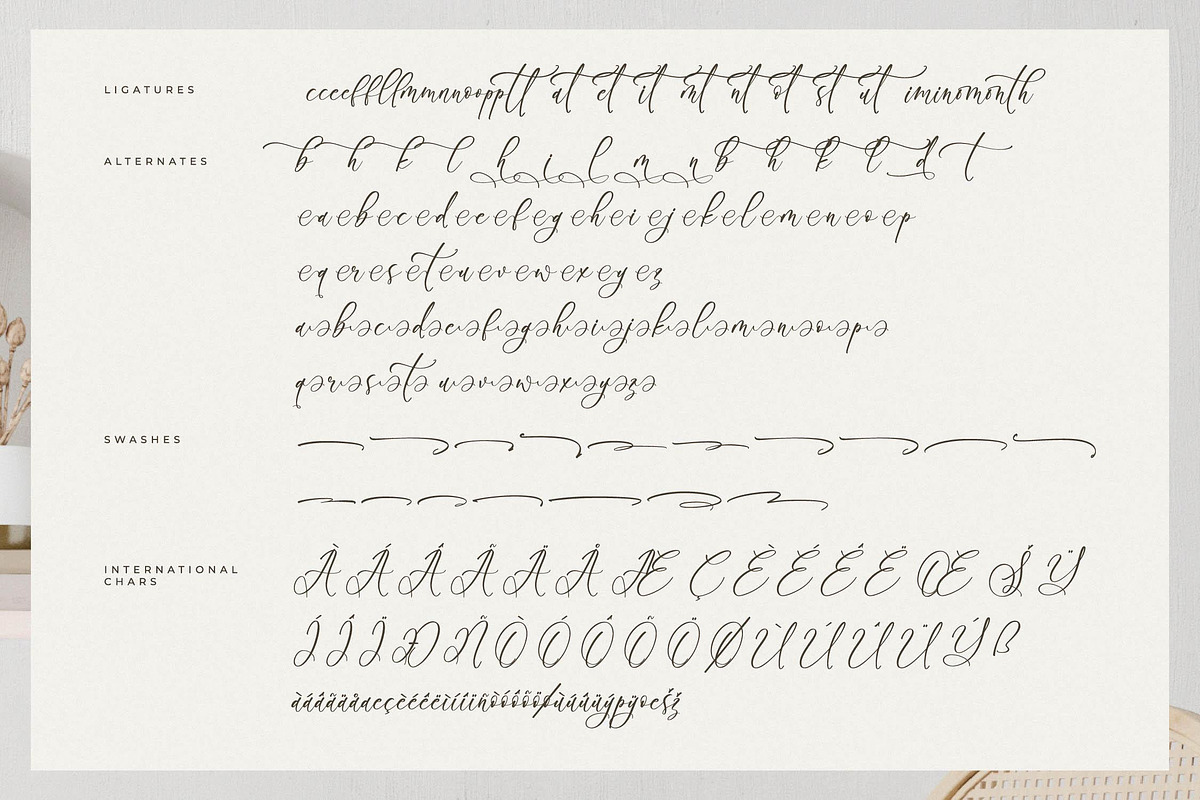 LIGATURES
ccceffllfmmnnooopptt at et it mt nt ot st ut iminomonth
ALTERNATES
b h k l h i l m n b h k l d t
ea eb ec ed ee ef eg eh ei ej ek el em en eo ep
eq er es et eu ev ew ex ey ez
a b c d e f g h i j k l m n o p
q r s t u v w x y z
SWASHES
INTERNATIONAL
CHARS
À Á Â Ã Ä Å Æ Ç È É Ê Ë Œ Š Ÿ
Í Î Ï Ð Ñ Ò Ó Ô Õ Ö Ø Ù Ú Û Ü Ý ß
àáâãäåæçèéêëìíîïñòóôõöøùúûüýþÿœšž